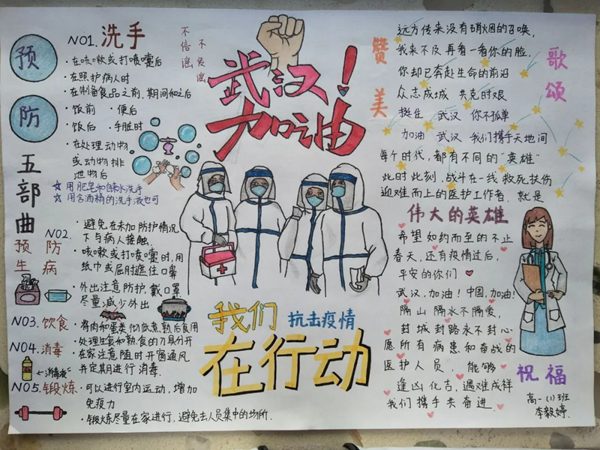 预防五部曲
NO1. 洗手
·在咳嗽或打喷嚏后
·在照护病人时
·在制备食品之前、期间和之后
·饭前 ·便后
·饭后 ·手脏时
·在处理动物
或动物排
泄物后
☆用肥皂和自来水洗手
☆用含酒精的洗手液也可
NO2.
预防
生病
·避免在未加防护情况
下与病人接触。
·咳嗽或打喷嚏时,用
纸巾或屈肘遮住口鼻
·外出注意防护,戴口罩
尽量减少外出
NO3. 饮食
·将肉和蛋类彻底煮熟后食用
·处理生食和熟食的刀具分开
NO4. 消毒
·在家注意随时开窗通风
并定期进行消毒。
消毒液
NO5. 锻炼
·可以进行室内运动,增加
免疫力
·锻炼尽量在家进行,避免去人员集中的场所.
不信谣
不传谣
武汉!
加油
我们
抗击疫情
在行动
赞美
歌颂
远方传来没有硝烟的召唤,
我来不及再看一看你的脸,
你却已奔赴生命的前沿
众志成城 共克时艰
挺住 武汉 你不孤单
加油 武汉 我们携手天地间
每个时代,都有不同的“英雄”
此时此刻,战斗在一线救死扶伤
迎难而上的医护工作者,就是
伟大的英雄
希望如约而至的不止
春天,还有疫情过后,
平安的你们
武汉,加油!中国,加油!
隔山 隔水不隔爱,
封城封路永不封心.
愿所有病患和奋战的
医护人员 能够
逢凶化吉,遇难成祥
我们携手共奋进
祝福
高一(1)班
李毅婷